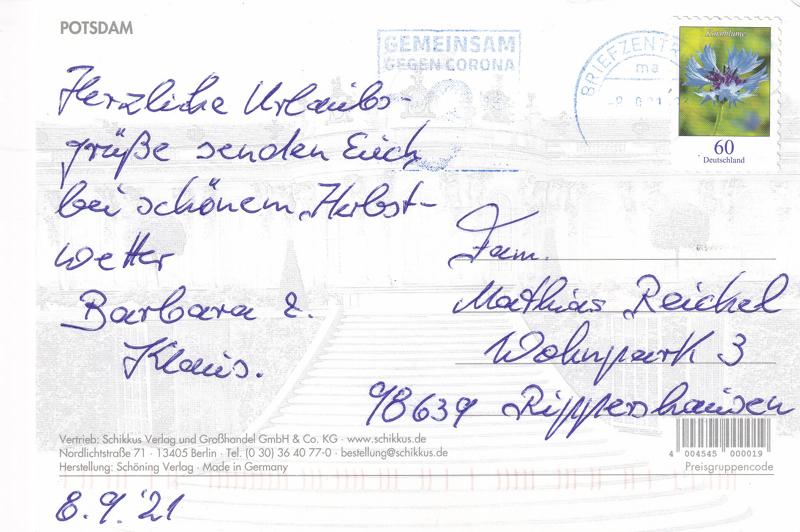 POTSDAM
GEMEINSAM
GEGEN CORONA
BRIEFZENTR
ma
Kornblume
60
Deutschland
Herzliche Urlaubs-
grüße senden Euch
bei schönem „Herbst-
wetter
Barbara &
Klaus.
Fam.
Mathias Reichel
Wohnpark 3
98639 Rippershausen
Vertrieb: Schikkus Verlag und Großhandel GmbH & Co. KG · www.schikkus.de
Nordlichtstraße 71 · 13405 Berlin · Tel. (0 30) 36 40 77-0 · bestellung@schikkus.de
Herstellung: Schöning Verlag · Made in Germany
4 004545 000019
Preisgruppencode
8.9.'21